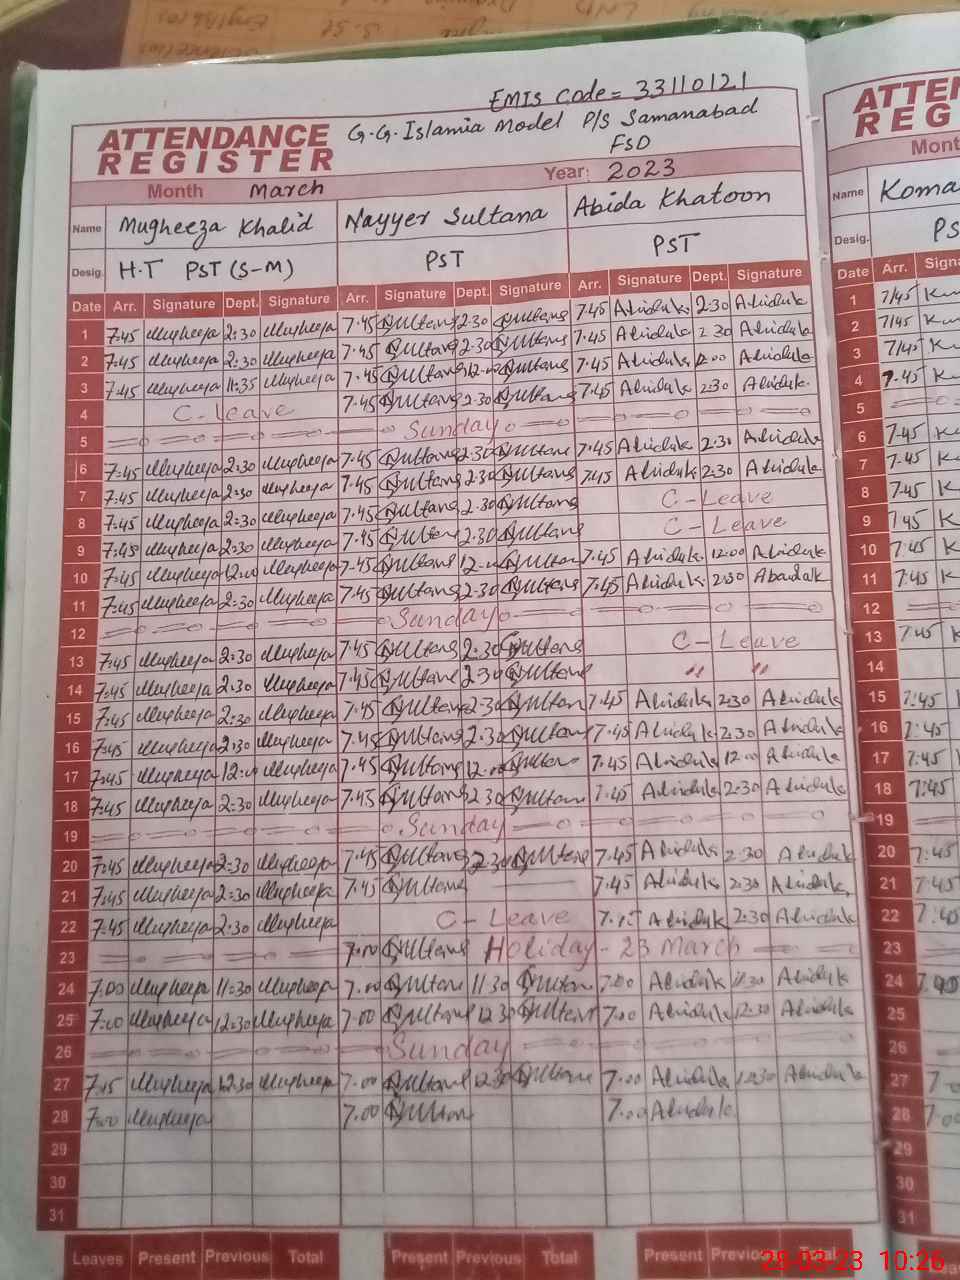 EMIS Code = 33110121
ATTENDANCE REGISTER
G.G. Islamia Model P/S Samanabad
FSD
Month March Year: 2023
Name Mugheeza Khalid Nayyer Sultana Abida Khatoon
Desig. H.T PST (S-M) PST PST
Date Arr. Signature Dept. Signature Arr. Signature Dept. Signature Arr. Signature Dept. Signature
1 7:45 Mugheeza 2:30 Mugheeza 7.45 NSultana 2.30 NSultana 7.45 Abidak 2:30 Abidak
2 7:45 Mugheeza 2:30 Mugheeza 7.45 NSultana 2.30 NSultana 7.45 Abidak 2 30 Abidak
3 7:45 Mugheeza 11:35 Mugheeza 7.45 NSultana NSultana 7.45 Abidak 12:00 Abidak
4 C-leave 7.45 NSultana 2.30 NSultana 7.45 Abidak 2:30 Abidak
5 Sunday
6 7:45 Mugheeza 2:30 Mugheeza 7.45 NSultana 2.30 NSultana 7.45 Abidak 2:30 Abidak
7 7:45 Mugheeza 2:30 Mugheeza 7.45 NSultana 2.30 NSultana 7.45 Abidak 2:30 Abidak
8 7:45 Mugheeza 2:30 Mugheeza 7.45 NSultana 2.30 NSultana C-Leave
9 7:45 Mugheeza 2:30 Mugheeza 7.45 NSultana 2.30 NSultana C-Leave
10 7:45 Mugheeza 12:00 Mugheeza 7.45 NSultana NSultana 7.45 Abidak 12:00 Abidak
11 7:45 Mugheeza 2:30 Mugheeza 7.45 NSultana 2.30 NSultana 7.45 Abidak 2:30 Abidak
12 Sunday
13 7:45 Mugheeza 2:30 Mugheeza 7.45 NSultana 2.30 NSultana C-Leave
14 7:45 Mugheeza 2:30 Mugheeza 7.45 NSultana 2.30 NSultana " "
15 7:45 Mugheeza 2:30 Mugheeza 7.45 NSultana 2.30 NSultana 7.45 Abidak 2:30 Abidak
16 7:45 Mugheeza 2:30 Mugheeza 7.45 NSultana 2.30 NSultana 7.45 Abidak 2:30 Abidak
17 7:45 Mugheeza 12:00 Mugheeza 7.45 NSultana NSultana 7.45 Abidak 12:00 Abidak
18 7:45 Mugheeza 2:30 Mugheeza 7.45 NSultana 2.30 NSultana 7.45 Abidak 2:30 Abidak
19 Sunday
20 7:45 Mugheeza 2:30 Mugheeza 7.45 NSultana 2.30 NSultana 7.45 Abidak 2:30 Abidak
21 7:45 Mugheeza 2:30 Mugheeza 7.45 NSultana 7.45 Abidak 2:30 Abidak
22 7:45 Mugheeza 2:30 Mugheeza C-Leave Abidak 2:30 Abidak
23 7.00 NSultana Holiday - 23 March
24 7:00 Mugheeza 11:30 Mugheeza 7.00 NSultana 11 30 NSultana 7:00 Abidak 11:30 Abidak
25 7:00 Mugheeza 12:30 Mugheeza 7.00 NSultana 12 30 NSultana 7.00 Abidak 12:30 Abidak
26 Sunday
27 7:15 Mugheeza 12:30 Mugheeza 7.00 NSultana 12 30 NSultana 7.00 Abidak 12:30 Abidak
28 7:00 Mugheeza 7.00 NSultana 7.00 Abidak
29
30
31
Leaves Present Previous Total Present Previous Total Present Previous Total
ATTEN
REG
Mont
Name Koma
Desig. PS
Date Arr. Signa
1 7/45
2 7/45
3 7/45
4 7.45
5
6 7.45
7 7.45
8 7.45
9 7 45
10 7:45
11 7:45
12
13 7:45
14
15 7:45
16 7:45
17 7:45
18 7:45
19
20 7:45
21 7:45
22
23
24
25
26
27
28
29
30
31
28-03-23 10:26